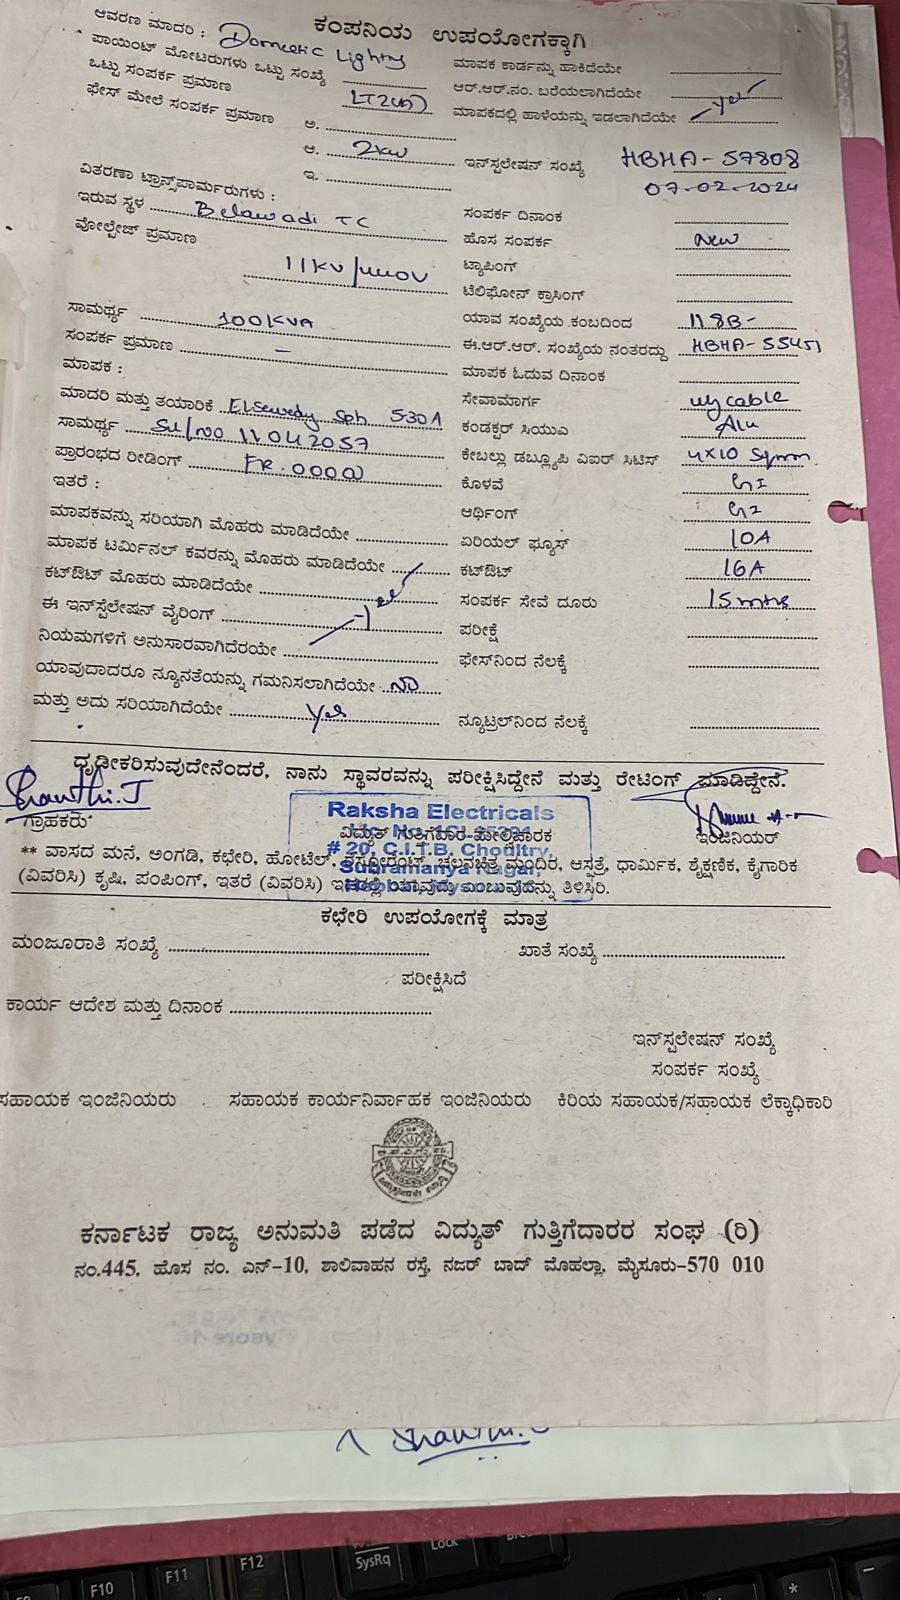 ಕಂಪನಿಯ ಉಪಯೋಗಕ್ಕಾಗಿ
ಆವರಣ ಮಾದರಿ : Domestic Lighting
ಮಾಪಕ ಕಾರ್ಡನ್ನು ಹಾಕಿದೆಯೇ
ಪಾಯಿಂಟ್ ಮೋಟರುಗಳು ಒಟ್ಟು ಸಂಖ್ಯೆ
ಆರ್.ಆರ್.ನಂ. ಬರೆಯಲಾಗಿದೆಯೇ
ಒಟ್ಟು ಸಂಪರ್ಕ ಪ್ರಮಾಣ
ಮಾಪಕದಲ್ಲಿ ಹಾಳೆಯನ್ನು ಇಡಲಾಗಿದೆಯೇ Yes
ಫೇಸ್ ಮೇಲೆ ಸಂಪರ್ಕ ಪ್ರಮಾಣ ಅ.
ಆ. 2kw
ಇನ್‌ಸ್ಟಲೇಷನ್ ಸಂಖ್ಯೆ HBHA-57808
ಇ.
07-02-2024
ವಿತರಣಾ ಟ್ರಾನ್ಸ್‌ಪಾರ್ಮರುಗಳು :
ಇರುವ ಸ್ಥಳ Belawadi TC
ಸಂಪರ್ಕ ದಿನಾಂಕ
ವೋಲ್ಟೇಜ್ ಪ್ರಮಾಣ
ಹೊಸ ಸಂಪರ್ಕ New
11KV/
ಟ್ಯಾಪಿಂಗ್
ಟೆಲಿಫೋನ್ ಕ್ರಾಸಿಂಗ್
ಸಾಮರ್ಥ್ಯ 100KVA
ಯಾವ ಸಂಖ್ಯೆಯ ಕಂಬದಿಂದ 118B-
ಸಂಪರ್ಕ ಪ್ರಮಾಣ -
ಈ.ಆರ್.ಆರ್. ಸಂಖ್ಯೆಯ ನಂತರದ್ದು HBHA-55451
ಮಾಪಕ :
ಮಾಪಕ ಓದುವ ದಿನಾಂಕ
ಮಾದರಿ ಮತ್ತು ತಯಾರಿಕೆ Elsewedy Sph 5-30A
ಸೇವಾಮಾರ್ಗ ug cable
ಸಾಮರ್ಥ್ಯ Sl/no 11042057
ಕಂಡಕ್ಟರ್ ಸಿಯುಎ Alu
ಪ್ರಾರಂಭದ ರೀಡಿಂಗ್ FR.0000
ಕೇಬಲ್ಲು ಡಬ್ಲ್ಯೂಪಿ ವಿಐರ್ ಸಿಟಿಸ್ 4x10 Sqmm
ಇತರೆ :
ಕೊಳವೆ GI
ಮಾಪಕವನ್ನು ಸರಿಯಾಗಿ ಮೊಹರು ಮಾಡಿದೆಯೇ
ಆರ್ಥಿಂಗ್ GI
ಮಾಪಕ ಟರ್ಮಿನಲ್ ಕವರನ್ನು ಮೊಹರು ಮಾಡಿದೆಯೇ
ಏರಿಯಲ್ ಫ್ಯೂಸ್ 10A
ಕಟ್‌ಔಟ್ ಮೊಹರು ಮಾಡಿದೆಯೇ
ಕಟ್‌ಔಟ್ 16A
ಈ ಇನ್‌ಸ್ಟೆಲೇಷನ್ ವೈರಿಂಗ್ Yes
ಸಂಪರ್ಕ ಸೇವೆ ದೂರು 15mtrs
ನಿಯಮಗಳಿಗೆ ಅನುಸಾರವಾಗಿದೆರಯೇ
ಪರೀಕ್ಷೆ
ಯಾವುದಾದರೂ ನ್ಯೂನತೆಯನ್ನು ಗಮನಿಸಲಾಗಿದೆಯೇ NO
ಫೇಸ್‌ನಿಂದ ನೆಲಕ್ಕೆ
ಮತ್ತು ಅದು ಸರಿಯಾಗಿದೆಯೇ Yes
ನ್ಯೂಟ್ರಲ್‌ನಿಂದ ನೆಲಕ್ಕೆ
ಧೃಡೀಕರಿಸುವುದೇನೆಂದರೆ, ನಾನು ಸ್ಥಾವರವನ್ನು ಪರೀಕ್ಷಿಸಿದ್ದೇನೆ ಮತ್ತು ರೇಟಿಂಗ್ ಮಾಡಿದ್ದೇನೆ.
Shanthi.J
Raksha Electricals
ಗ್ರಾಹಕರು
ವಿದ್ಯುತ್ ಗುತ್ತಿಗೆದಾರ ಮೇಲ್ವಿಚಾರಕ
ಇಂಜಿನಿಯರ್
# 20, C.I.T.B. Choultry,
Subramanya Nagar,
** ವಾಸದ ಮನೆ, ಅಂಗಡಿ, ಕಛೇರಿ, ಹೋಟೆಲ್, ರೆಸ್ಟೋರಂಟ್, ಚಲನಚಿತ್ರ ಮಂದಿರ, ಆಸ್ಪತ್ರೆ, ಧಾರ್ಮಿಕ, ಶೈಕ್ಷಣಿಕ, ಕೈಗಾರಿಕ
(ವಿವರಿಸಿ) ಕೃಷಿ, ಪಂಪಿಂಗ್, ಇತರೆ (ವಿವರಿಸಿ) ಇದರಲ್ಲಿ ಯಾವುದು ಎಂಬುವುದನ್ನು ತಿಳಿಸಿರಿ.
ಕಛೇರಿ ಉಪಯೋಗಕ್ಕೆ ಮಾತ್ರ
ಮಂಜೂರಾತಿ ಸಂಖ್ಯೆ
ಖಾತೆ ಸಂಖ್ಯೆ
ಪರೀಕ್ಷಿಸಿದೆ
ಕಾರ್ಯ ಆದೇಶ ಮತ್ತು ದಿನಾಂಕ
ಇನ್‌ಸ್ಟಲೇಷನ್ ಸಂಖ್ಯೆ
ಸಂಪರ್ಕ ಸಂಖ್ಯೆ
ಸಹಾಯಕ ಇಂಜಿನಿಯರು ಸಹಾಯಕ ಕಾರ್ಯನಿರ್ವಾಹಕ ಇಂಜಿನಿಯರು ಕಿರಿಯ ಸಹಾಯಕ/ಸಹಾಯಕ ಲೆಕ್ಕಾಧಿಕಾರಿ
ಕರ್ನಾಟಕ ರಾಜ್ಯ ಅನುಮತಿ ಪಡೆದ ವಿದ್ಯುತ್ ಗುತ್ತಿಗೆದಾರರ ಸಂಘ (ರಿ)
ನಂ.445, ಹೊಸ ನಂ. ಎನ್-10, ಶಾಲಿವಾಹನ ರಸ್ತೆ, ನಜರ್ ಬಾದ್ ಮೊಹಲ್ಲಾ, ಮೈಸೂರು-570 010
F10
F11
F12
SysRq
Lock